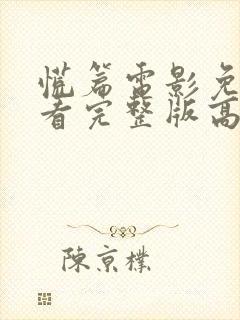 慌篇雷影免
者完整版高
陳京樸